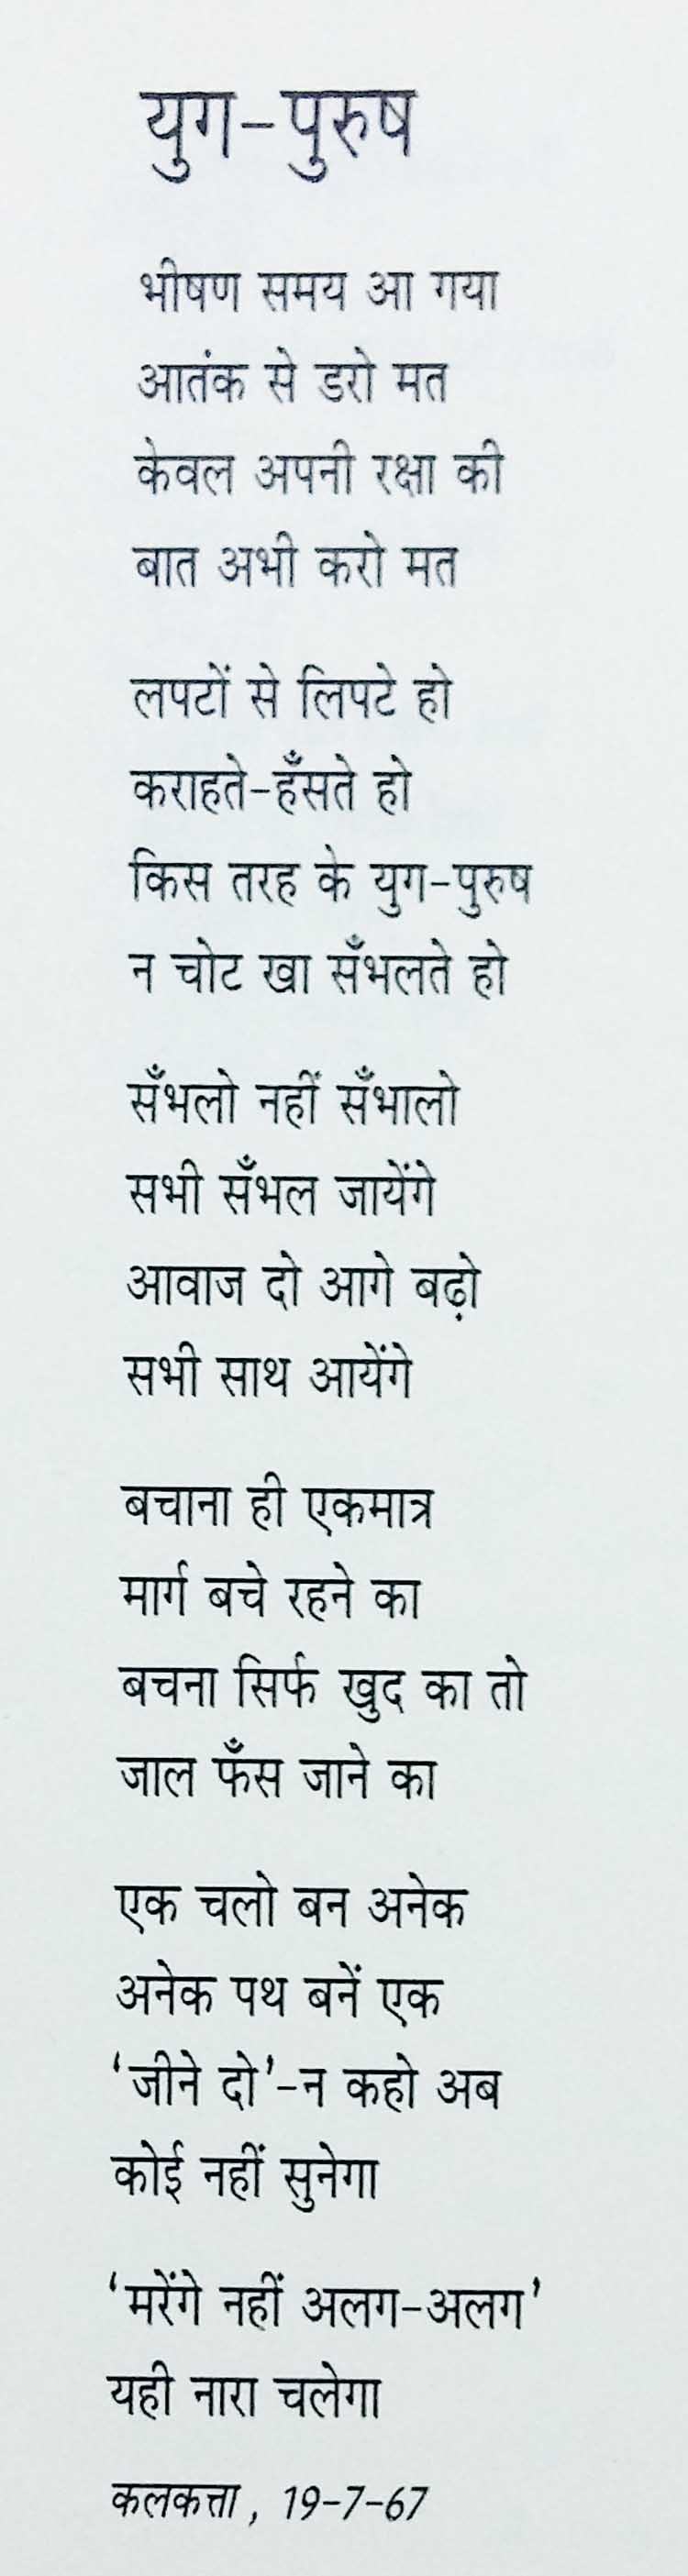 युग-पुरुष
भीषण समय आ गया
आतंक से डरो मत
केवल अपनी रक्षा की
बात अभी करो मत
लपटों से लिपटे हो
कराहते-हँसते हो
किस तरह के युग-पुरुष
न चोट खा सँभलते हो
सँभलो नहीं सँभालो
सभी सँभल जायेंगे
आवाज दो आगे बढ़ो
सभी साथ आयेंगे
बचाना ही एकमात्र
मार्ग बचे रहने का
बचना सिर्फ खुद का तो
जाल फँस जाने का
एक चलो बन अनेक
अनेक पथ बनें एक
‘जीने दो’-न कहो अब
कोई नहीं सुनेगा
‘मरेंगे नहीं अलग-अलग’
यही नारा चलेगा
कलकत्ता, 19-7-67